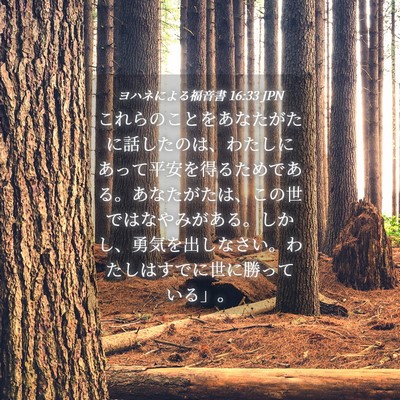 ヨハネによる福音書 16:33 JPN
これらのことをあなたがた
に話したのは、わたしに
あって平安を得るためであ
る。あなたがたは、この世
ではなやみがある。しか
し、勇気を出しなさい。わ
たしはすでに世に勝って
いる」。